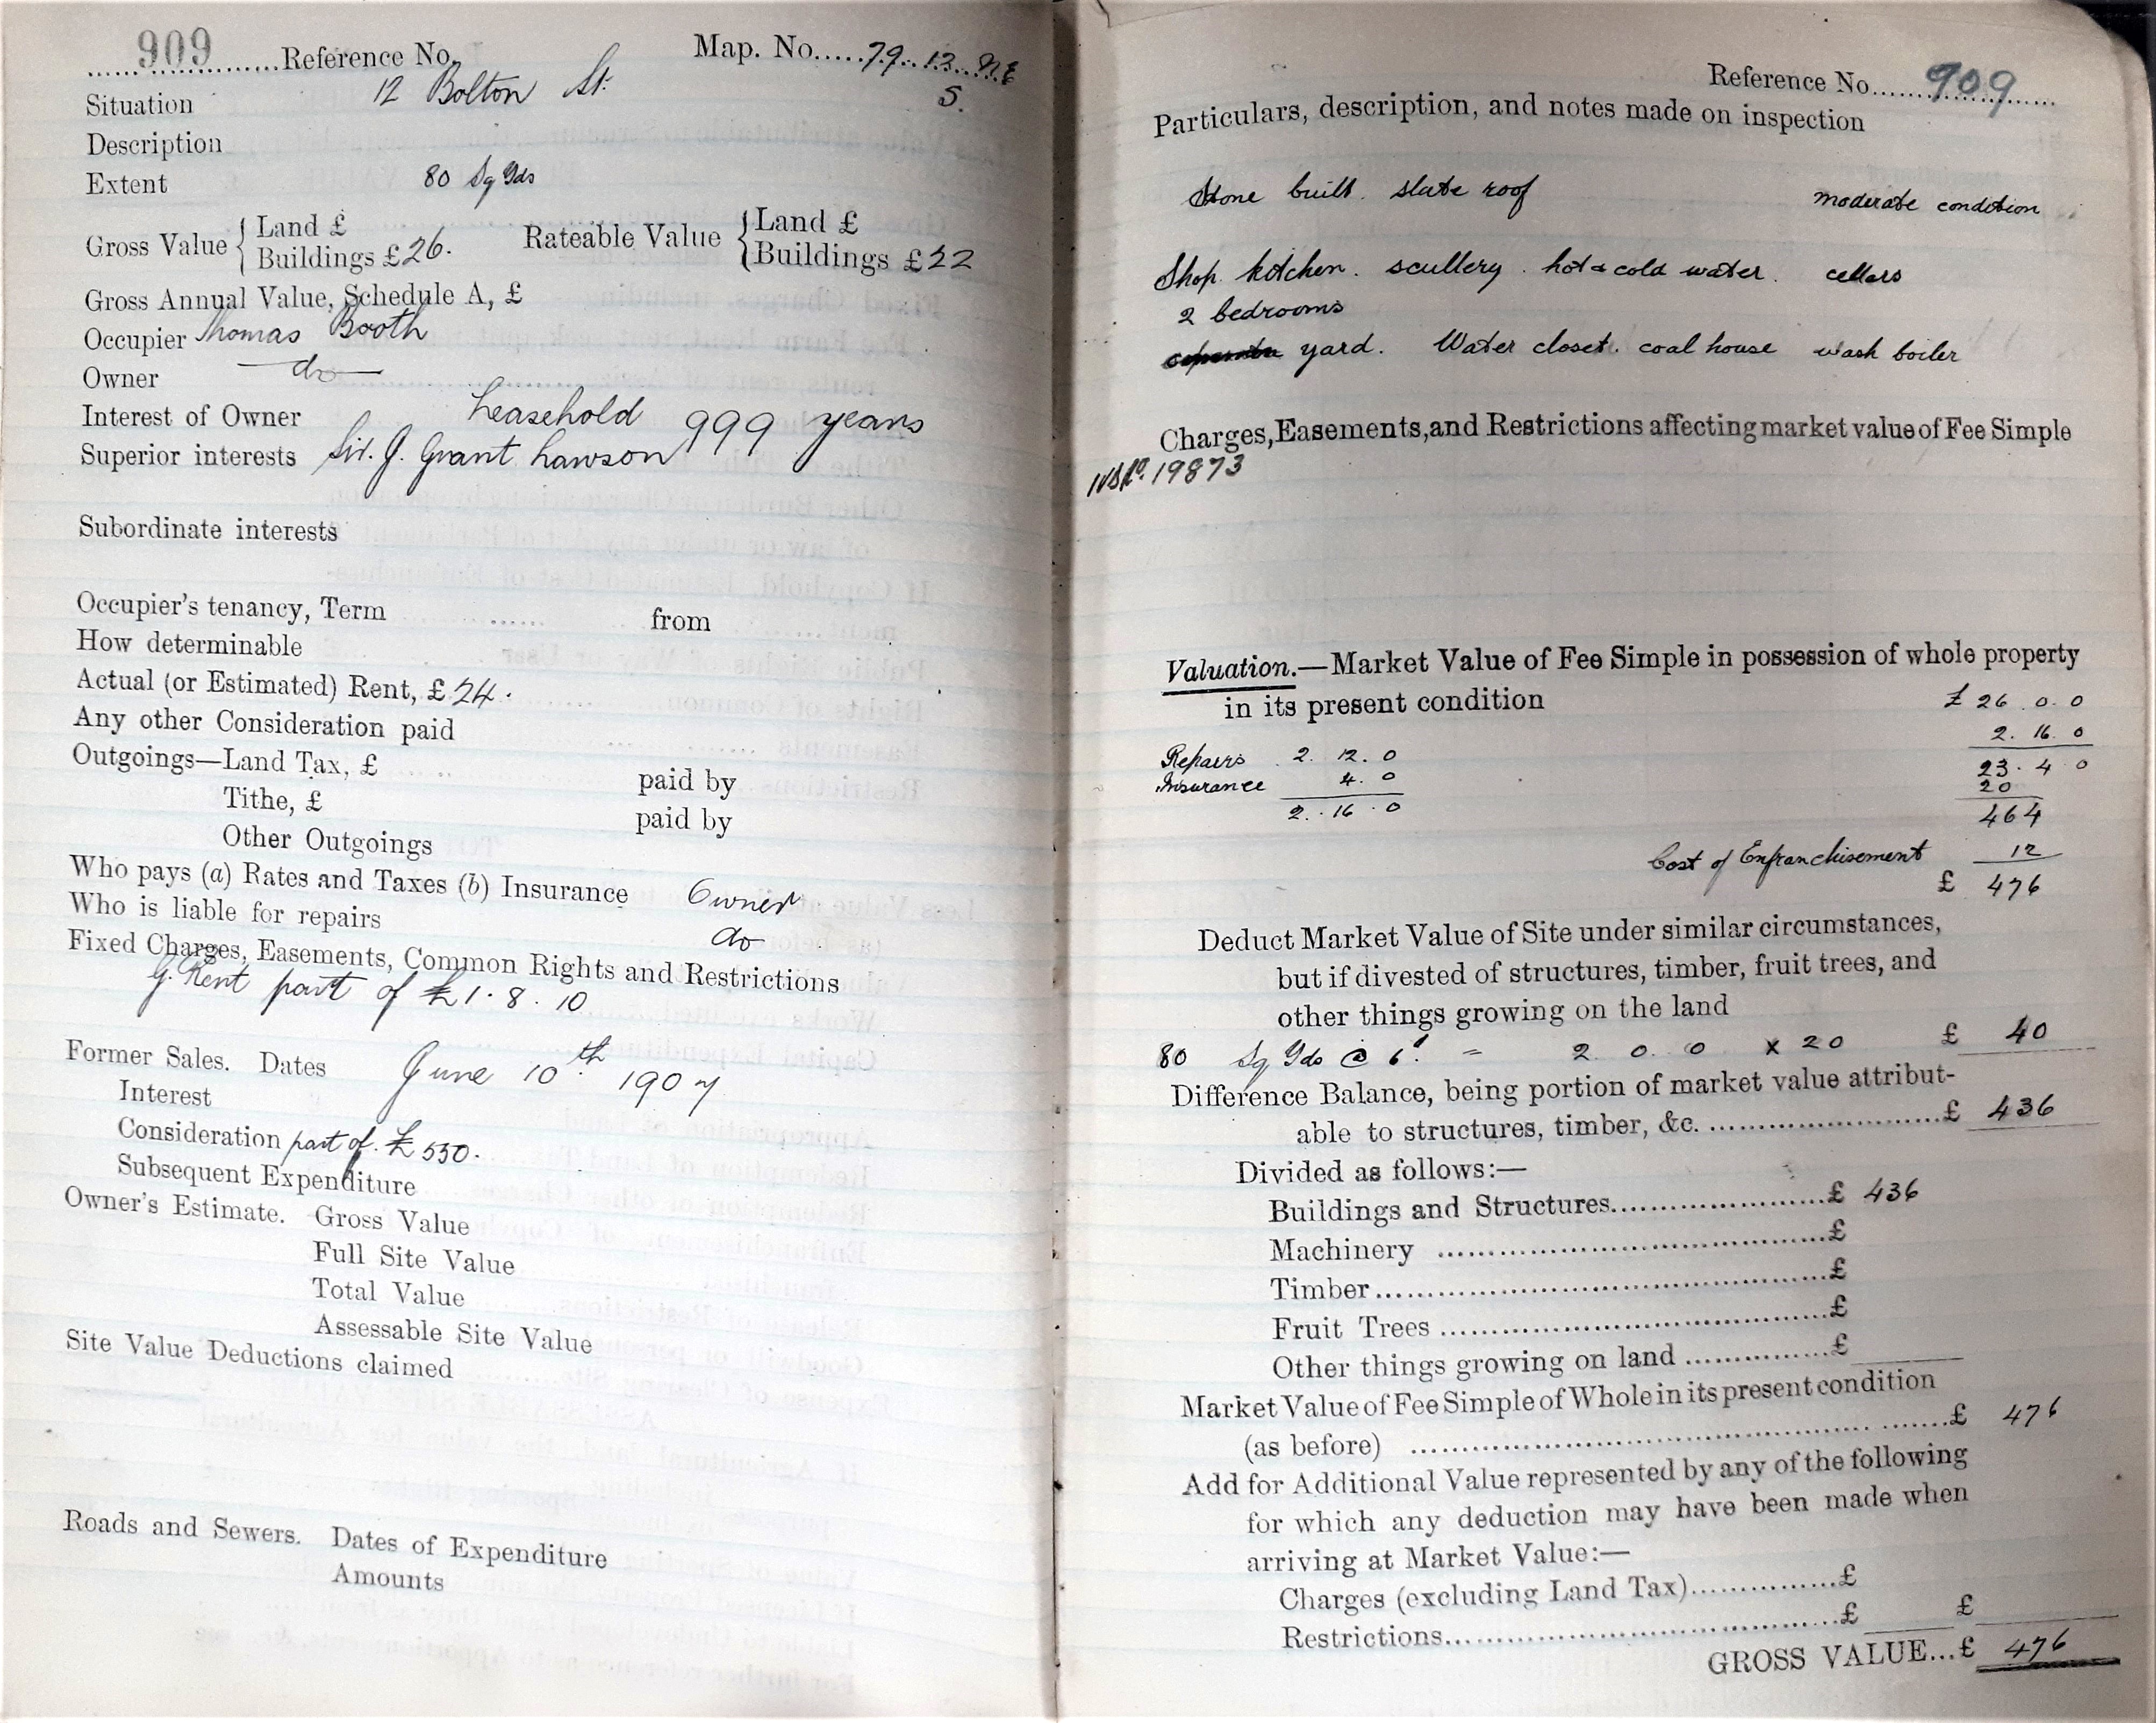 909 Reference No. Map. No. 79. 13. N.E
S.
Situation 12 Bolton St.
Description
Extent 80 Sq Yds
Gross Value { Land £
Buildings £26.
Rateable Value { Land £
Buildings £22
Gross Annual Value, Schedule A, £
Occupier Thomas Booth
Owner do
Interest of Owner Leasehold 999 years
Superior interests Sir. J. Grant Lawson
Subordinate interests
Occupier's tenancy, Term from
How determinable
Actual (or Estimated) Rent, £ 24.
Any other Consideration paid
Outgoings—Land Tax, £ paid by
Tithe, £ paid by
Other Outgoings
Who pays (a) Rates and Taxes (b) Insurance Owner
Who is liable for repairs do
Fixed Charges, Easements, Common Rights and Restrictions
G. Rent part of £1. 8. 10
Former Sales. Dates June 10th 1907
Interest
Consideration part of. £ 550.
Subsequent Expenditure
Owner's Estimate. Gross Value
Full Site Value
Total Value
Assessable Site Value
Site Value Deductions claimed
Roads and Sewers. Dates of Expenditure
Amounts
Reference No. 909
Particulars, description, and notes made on inspection
Stone built. slate roof moderate condition
Shop. kitchen. scullery. hot & cold water. cellars
2 bedrooms
yard. Water closet. coal house wash boiler
Charges, Easements, and Restrictions affecting market value of Fee Simple
19873
Valuation.—Market Value of Fee Simple in possession of whole property
in its present condition £ 26. 0. 0
2. 16. 0
Repairs 2. 12. 0
23. 4 0
Insurance 4. 0
20
2. 16. 0
464
Cost of Enfranchisement 12
£ 476
Deduct Market Value of Site under similar circumstances,
but if divested of structures, timber, fruit trees, and
other things growing on the land
80 Sq Yds @ 6d = 2. 0. 0 x 20 £ 40
Difference Balance, being portion of market value attribut-
able to structures, timber, &c. £ 436
Divided as follows:—
Buildings and Structures £ 436
Machinery £
Timber £
Fruit Trees £
Other things growing on land £
Market Value of Fee Simple of Whole in its present condition
(as before) £ 476
Add for Additional Value represented by any of the following
for which any deduction may have been made when
arriving at Market Value:—
Charges (excluding Land Tax) £
Restrictions £ £
GROSS VALUE...£ 476